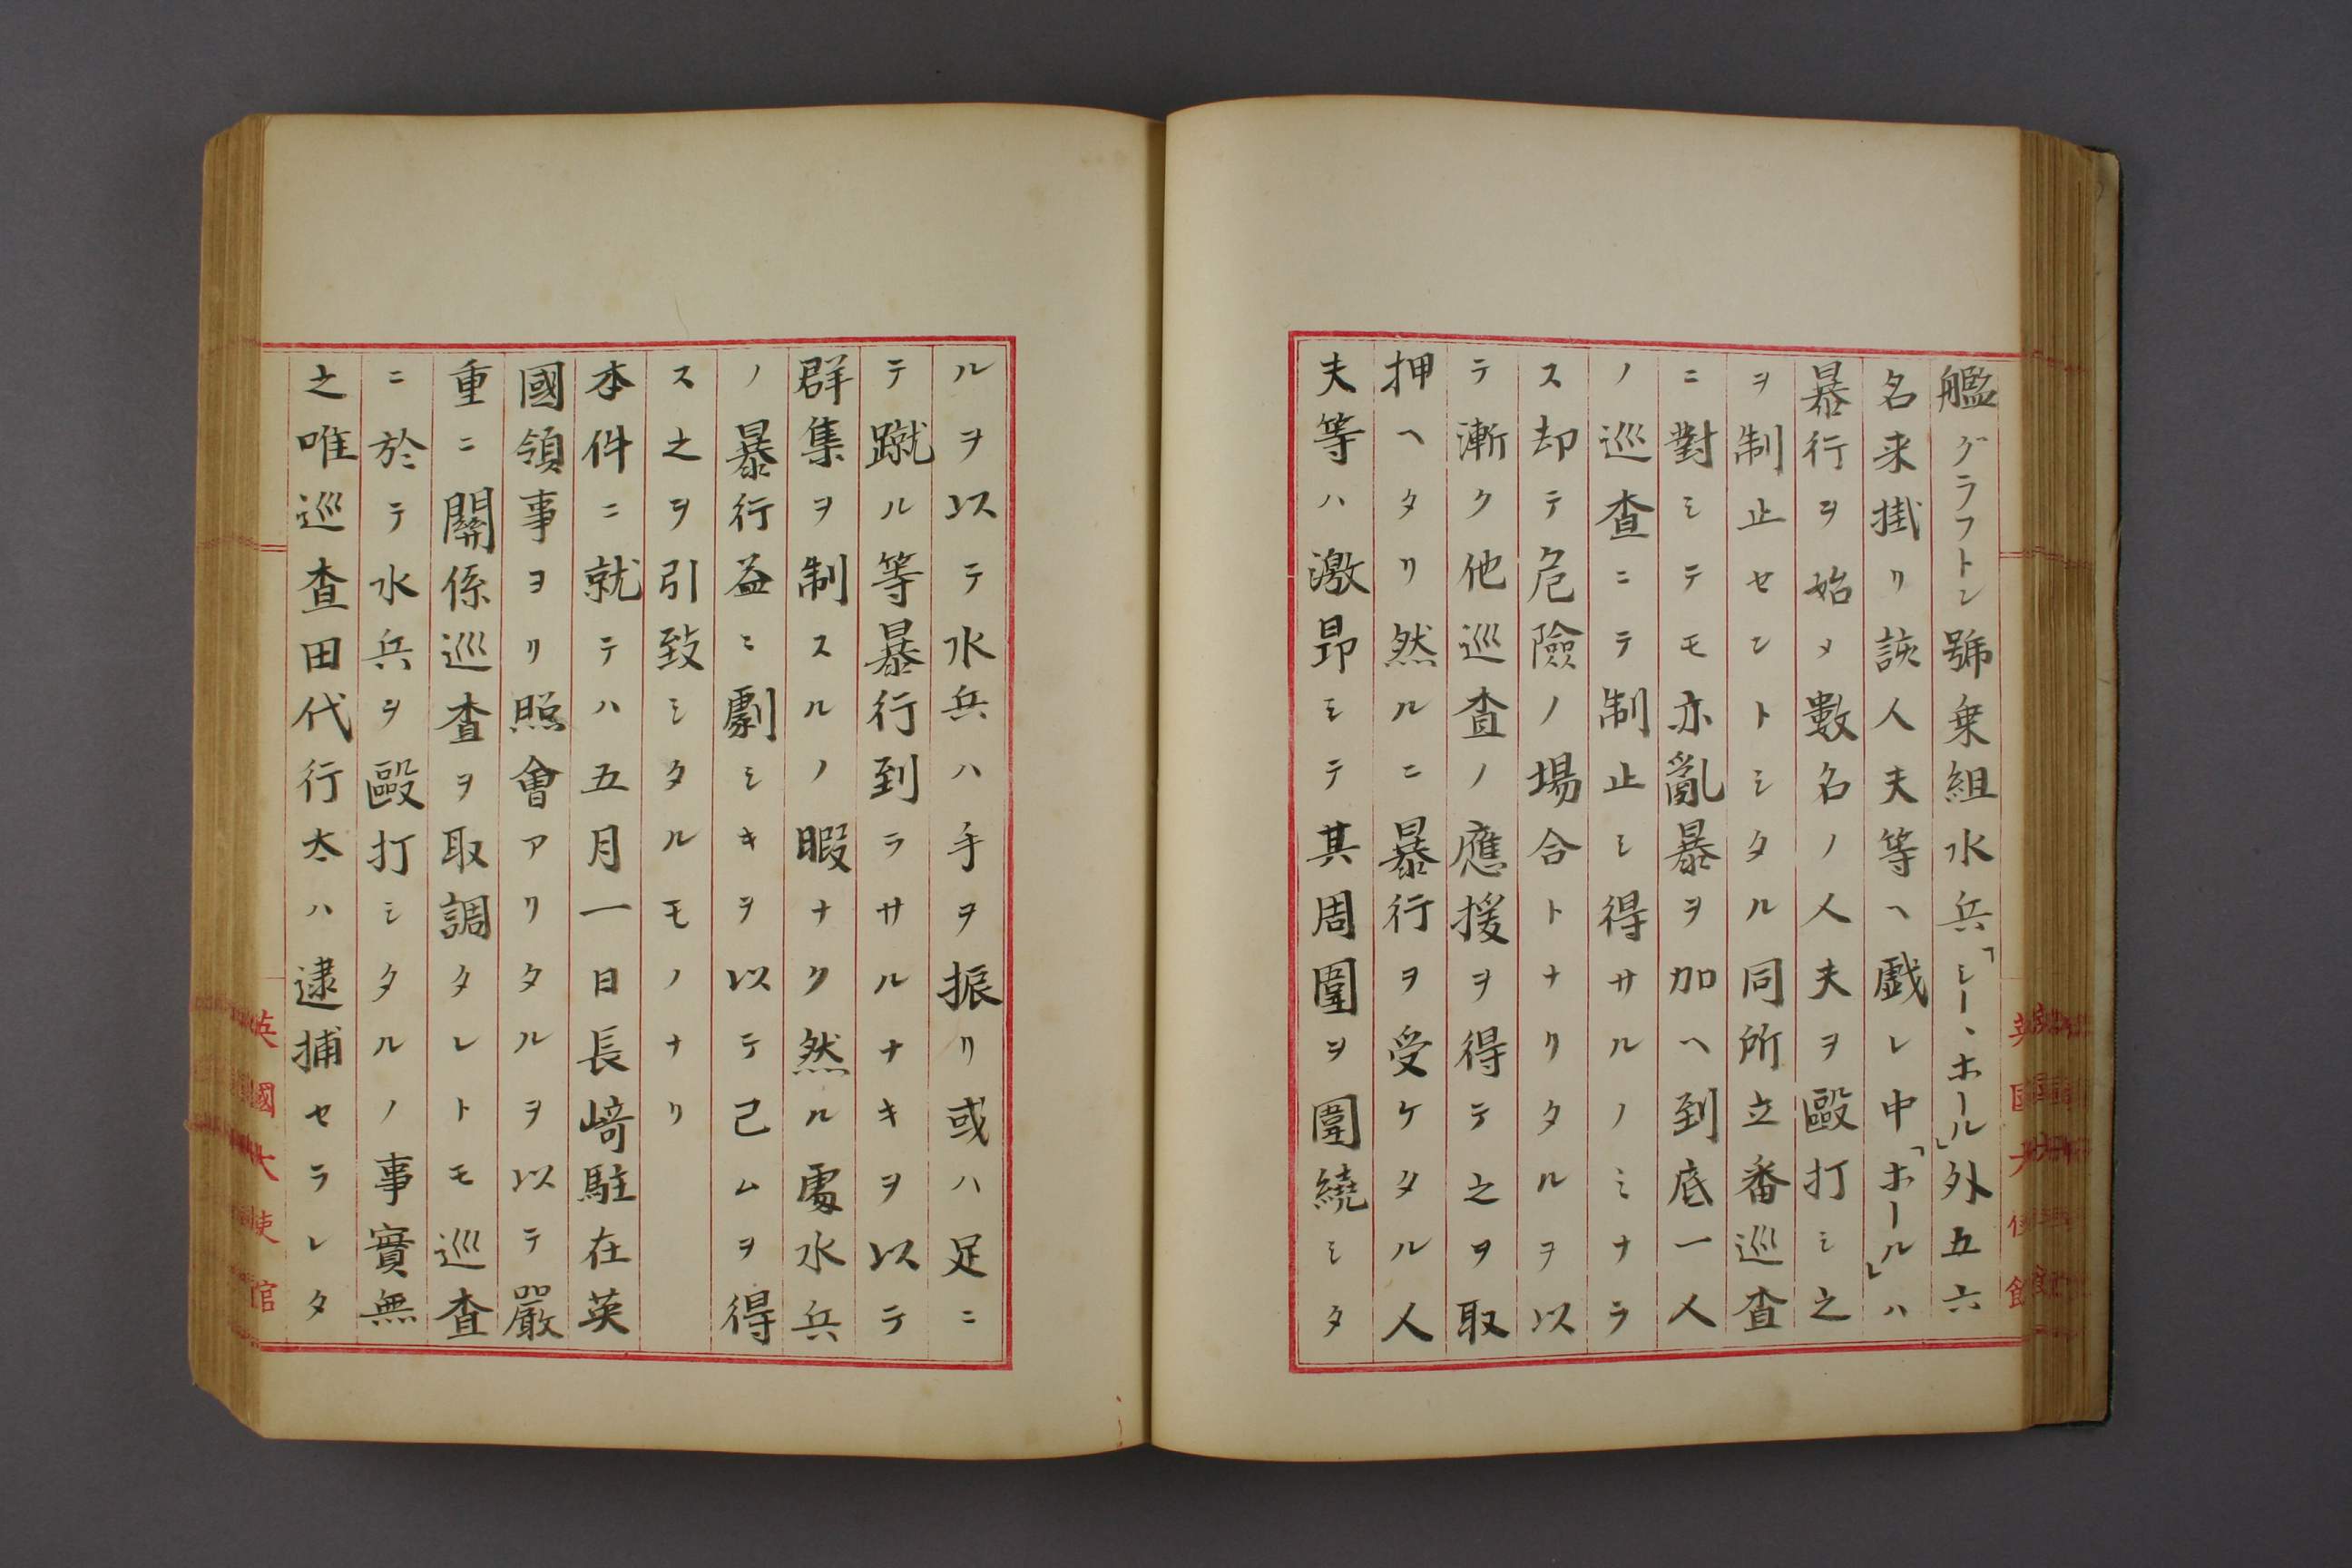 艦グラフトン號乗組水兵「シー、ホール」外五六
名来掛リ該人夫等ヘ戯レ中「ホール」ハ
暴行ヲ始メ數名ノ人夫ヲ毆打シ之
ヲ制止セントシタル同所立番巡査
ニ對シテモ亦亂暴ヲ加ヘ到底一人
ノ巡査ニテ制止シ得サルノミナラ
ス却テ危險ノ場合トナリタルヲ以
テ漸ク他巡査ノ應援ヲ得テ之ヲ取
押ヘタリ然ルニ暴行ヲ受ケタル人
夫等ハ激昂シテ其周圍ヲ圍繞シタ
ルヲ以テ水兵ハ手ヲ振リ或ハ足ニ
テ蹴ル等暴行到ラサルナキヲ以テ
群集ヲ制スルノ暇ナク然ル處水兵
ノ暴行益ミ劇シキヲ以テ己ムヲ得
ス之ヲ引致シタルモノナリ
本件ニ就テハ五月一日長﨑駐在英
國領事ヨリ照會アリタルヲ以テ嚴
重ニ關係巡査ヲ取調タレトモ巡査
ニ於テ水兵ヲ毆打シタルノ事實無
之唯巡査田代行太ハ逮捕セラレタ
英國大使館